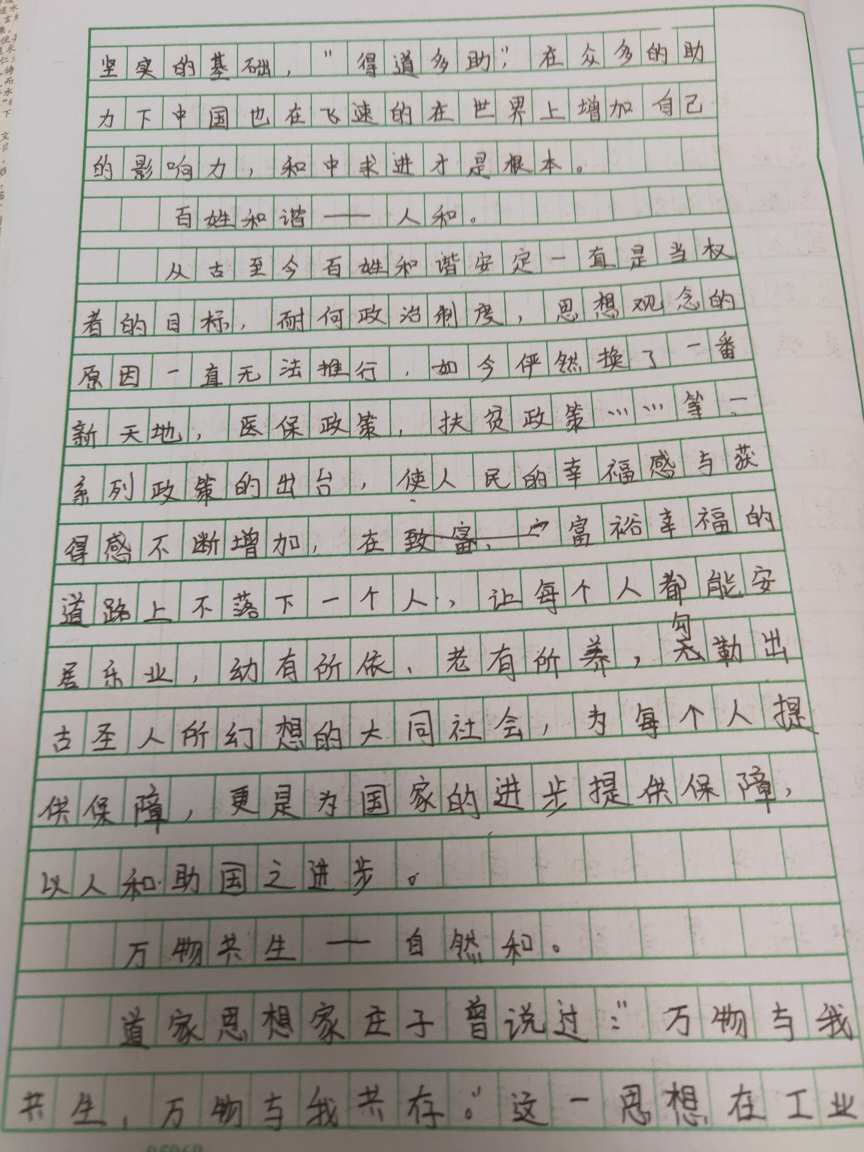 坚实的基础，“得道多助”，在众多的助
力下中国也在飞速的在世界上增加自己
的影响力，和中求进才是根本。
百姓和谐——人和。
从古至今百姓和谐安定一直是当权
者的目标，耐何政治制度，思想观念的
原因一直无法推行，如今俨然换了一番
新天地，医保政策，扶贫政策……等一
系列政策的出台，使人民的幸福感与获
得感不断增加，在富裕幸福的
道路上不落下一个人，让每个人都能安
居乐业，幼有所依、老有所养，勾勒出
古圣人所幻想的大同社会，为每个人提
供保障，更是为国家的进步提供保障，
以人和助国之进步。
万物共生——自然和。
道家思想家庄子曾说过：“万物与我
共生，万物与我共存。”这一思想在工业